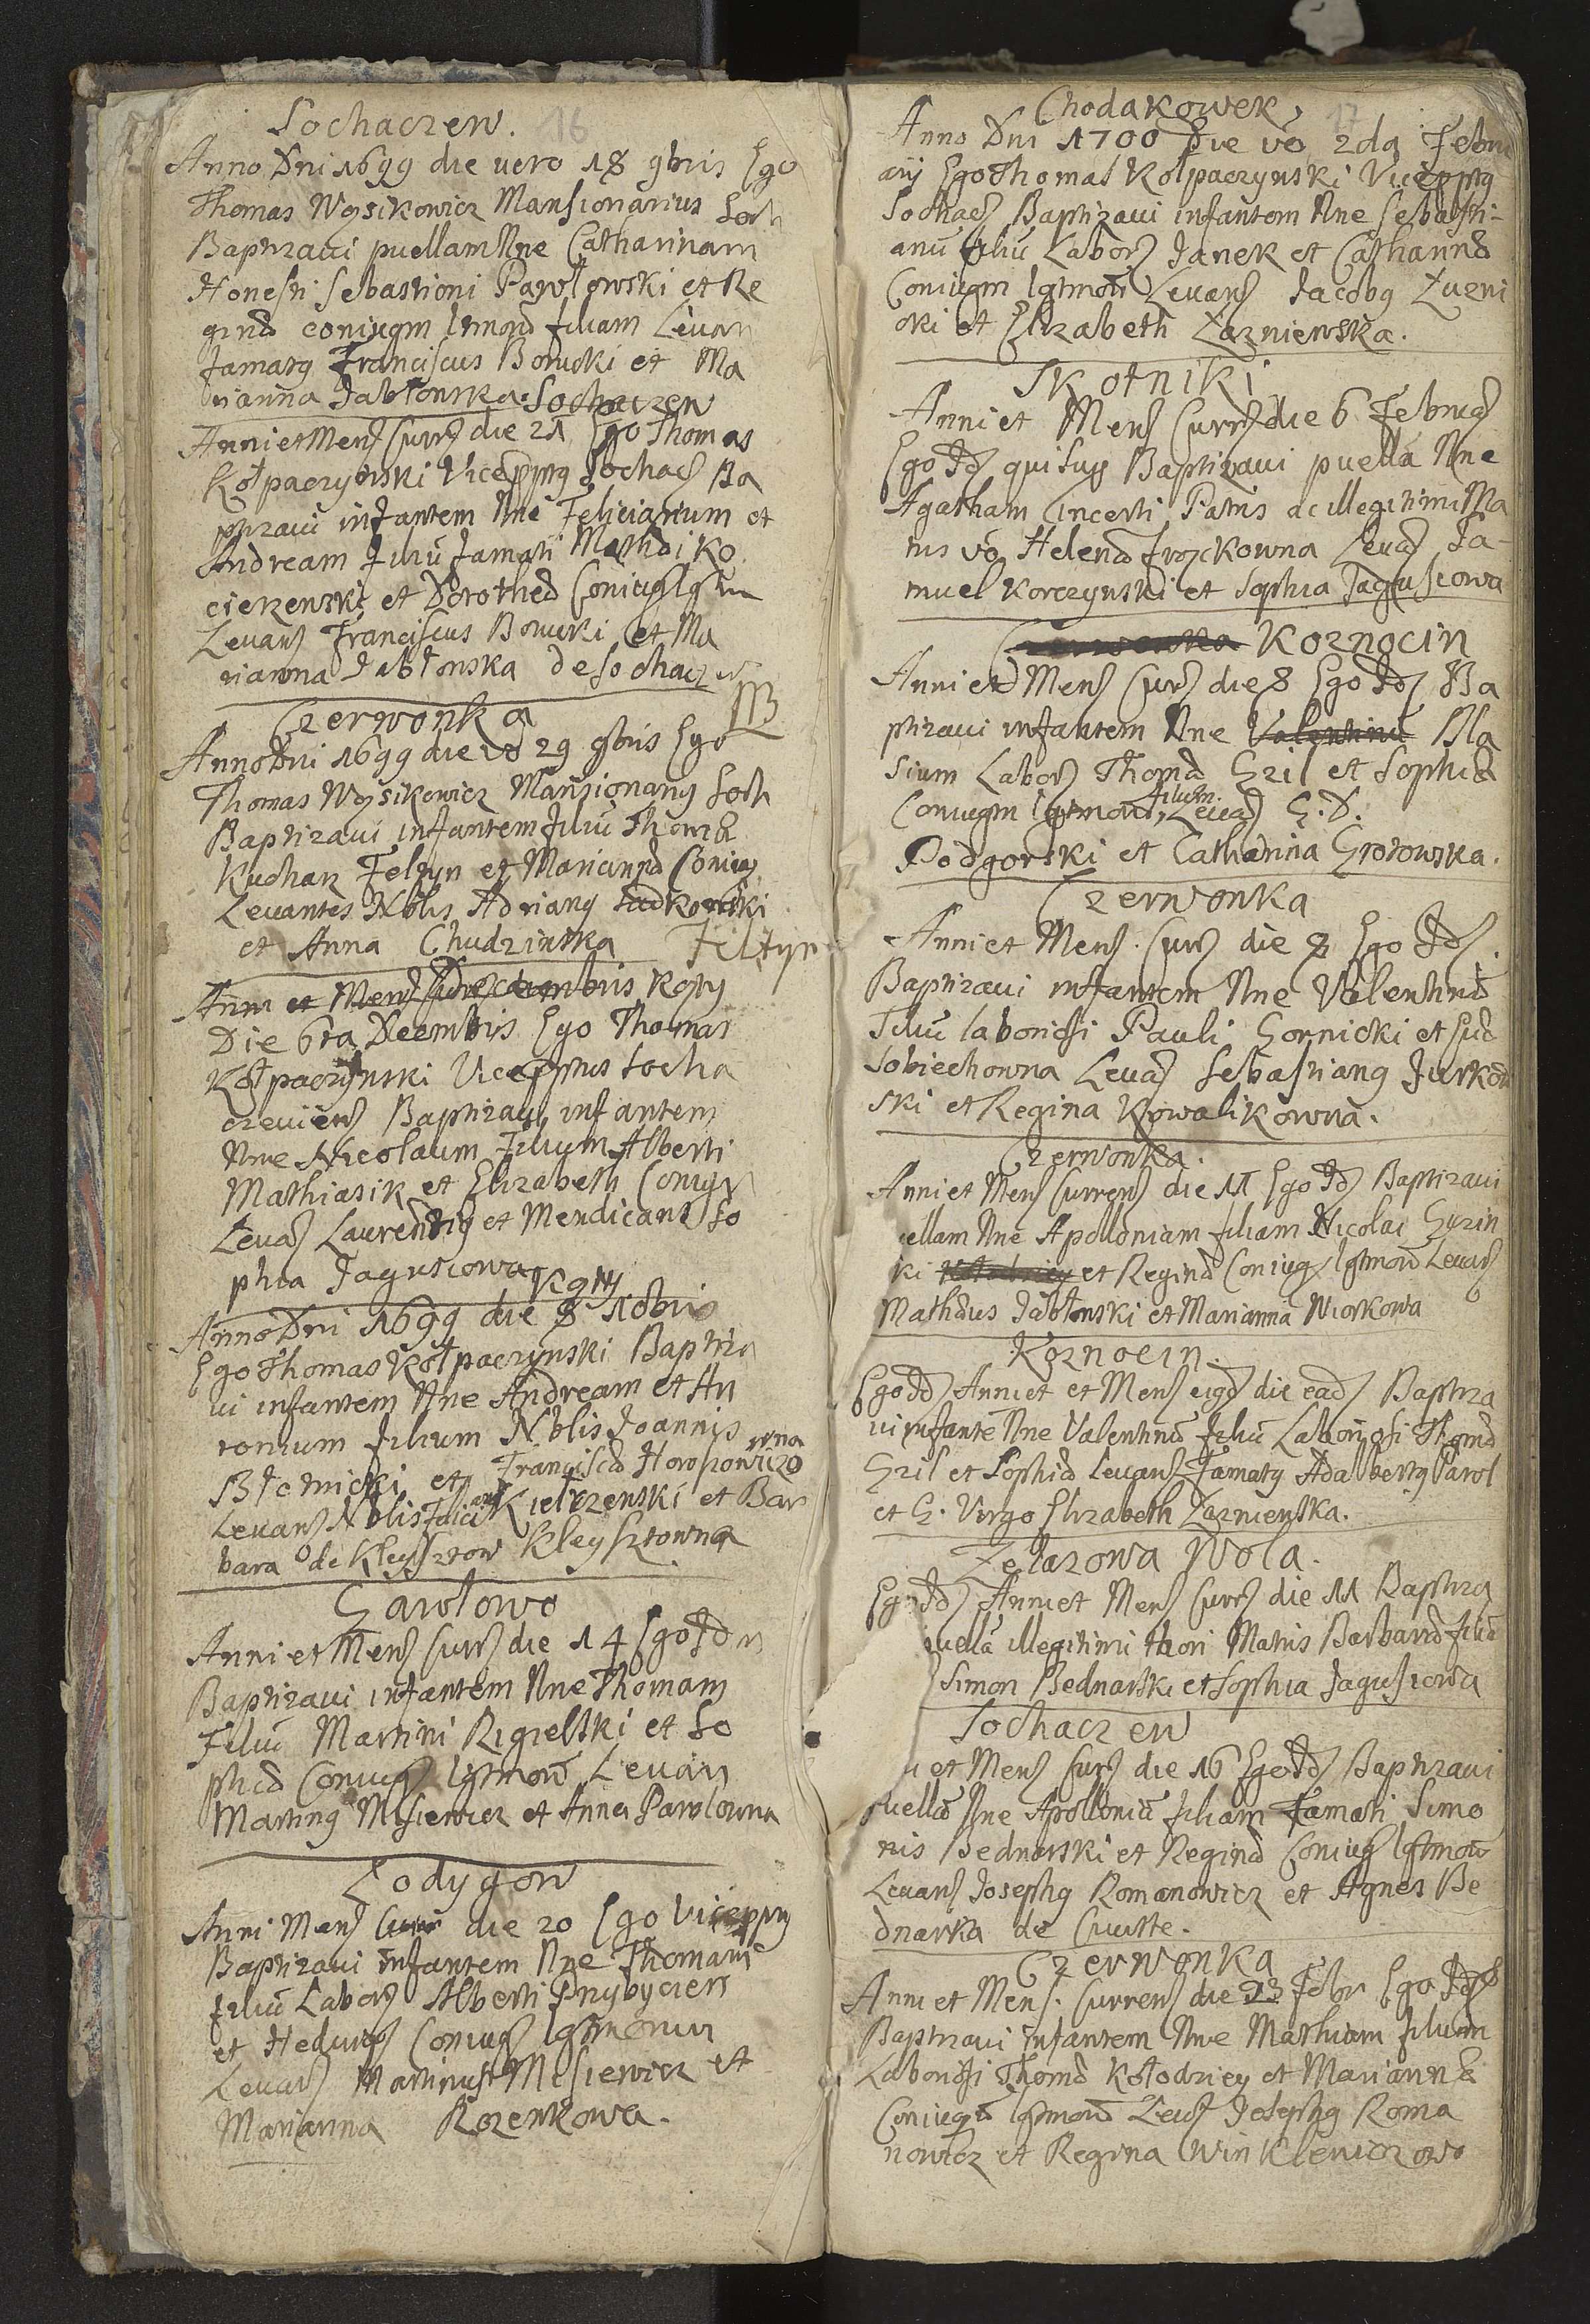 Sochaczew. 16
Anno Dni 1699 die uero 18 9bris Ego
Thomas Woysikowicz Mansionarius Soch
Baptizaui puellam Nne Catharinam
Honesti Sebastiani Pawłowski et Re
ginæ coniugm ltmorū filiam Leuan
famatg Franciscus Borucki et Ma
rianna Jabłonska. Sochaczew
Anni et Mens Curr die 21 Ego Thomas
Kołpaczynski Viceppتg Sochac Ba
ptizaui infantem Nne Felicianum et
Andream filiū famati Mathæi Ko
cierzenski et Dorotheæ Coniug lgtm
Leuans Franciscus Borucki et Ma
rianna Jabłonska de Sochaczew
Czerwonka
Anno Dni 1699 die vo 29 9bris Ego
Thomas Woysikowicz Mansionarig Soch
Baptizaui infantem filiū Thomæ
Kucharz Felzyn et Mariannæ Coniug
Leuantes Nblis Adriang Sadkowski
et Anna Chudzinska Feltyn
Anni et Mens
Die 6ta Decembris Ego Thomas
Kołpaczynski Viceppتus Socha
czeuiens Baptizaui infantem
Nne Nicolaum filium Alberti
Mathiasik et Elizabeth Coniug
Leuas Laurentig et Mendicans So
phia Jagusiowa
Anno Dni 1699 die 8 10bris
Ego Thomas Kołpaczynski Baptiza
ui infantem Nne Andream et An
tonium filium Nblis Joannis
Błomicki et Francisca
Leuans Nblis Kielczenski et Bar
bara de Kleysztow Kleysztowna
Gawłowo
Anni et Mens Curs die 14 Ego Idm
Baptizaui infantem Nne Thomam
filiū Martini Rigielski et So
phiæ Coniug lgtmorū Leuan
Marting Misiewicz et Anna Pawlowna
Łodygow
Anni Mens Curr die 20 Ego Viceppتg
Baptizaui infantem Nne Thomam
filiū Labors Alberti Przybyciers
et Heduigs Coniug lgtmorum
Leuans Martinus Misiewicz et
Marianna Rozenkowa.
Chodakowek 17
Anno Dni 1700 Die vo 2da Febru
arij Ego Thomas Kołpaczynski Viceppتg
Sochac Baptizaui infantem Nne Sebasti-
anū filiū Labors Janek et Catharinæ
Coniugm lgtmorū Leuans Jacobg Zurni
cki et Elizabeth Zazniewska.
Skotniki
Anni et Mens Curr die 6 Februa
Ego Id qui sup Baptizaui puellā Nne
Agatham incerti Patris ac illegitimi Ma
tris vo Helenæ Leuas Sa-
muel Korczynski et Sophia Jagusiowa
Koznocin
Anni et Mens Curs die 8 Ego Id Ba
ptizaui infantem Nne Valentinū Bla
sium Labors Thomæ Gzil et Sophiæ
Coniugm lgtmorū, filium. Leuas G. D.
Podgorski et Catharina Grotowska.
Czerwonka
Anni et Mens. Curs die 8 Ego Id
Baptizaui infantem Nne Valentinū
filiū laboriosi Pauli Gornicki et Euæ
Sobiechowna Leuas Sebastiang Jurkow
ski et Regina Kowalikowna.
Czerwonka.
Anni et Mens Currens die 11 Ego Id Baptizaui
uellam Nne Apolloniam filiam Nicolai Gurin
ki et Reginæ Coniug lgtmorū Leuas
Mathæus Jabłonski et Marianna Wiorkowa
Koznocin.
Ego Id Anni et et Mens eigd die ead Baptiza
ui infantē Nne Valentinū filiū Laboriosi Thomæ
Gzil et Sophiæ Leuans Famatg Adalbertg Pawol
et G. Virgo Elizabeth Zazniewska.
Zelazowa Wola.
Ego Id Anni et Mens Curr die 11 Baptiza
uellā illegitimi thori Matris Barbaræ filiā
Simon Bednarski et Sophia Jagusiowa
Sochaczew
i et Mens Curs die 16 Ego Id Baptizaui
puellā Nne Apolloniā filiam Famati Simo
nis Bednarski et Reginæ Coniug lgtmorū
Leuans Josephg Romanowicz et Agnes Be
dnarka de Ciuitte.
Czerwonka
Anni et Mens. Currens die 23 Febr Ego Id
Baptizaui infantem Nne Mathiam filium
Laboriosi Thomæ Kołodziey et Mariannæ
Coniugū lgtmorū Leus Josephg Roma
nowicz et Regina Winklewiczowa